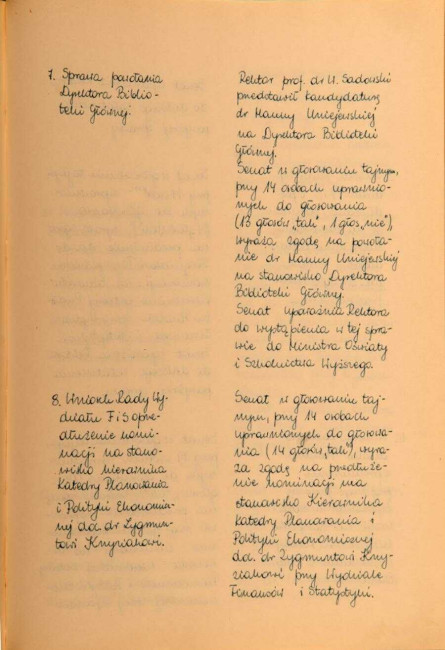 7. Sprawa powołania
Dyrektora Biblio-
teki Głównej.
Rektor prof. dr W. Sadowski
przedstawił kandydaturę
dr Hanny Uniejewskiej
na Dyrektora Biblioteki
Głównej.
Senat w głosowaniu tajnym,
przy 14 osobach uprawnio-
nych do głosowania
(13 głosów „tak", 1 głos „nie"),
wyraża zgodę na powoła-
nie dr Hanny Uniejewskiej
na stanowisko Dyrektora
Biblioteki Głównej.
Senat upoważnia Rektora
do wystąpienia w tej spra-
wie do Ministra Oświaty
i Szkolnictwa Wyższego.
8. Wniosek Rady Wy-
działu FiS o prze-
dłużenie nomi-
nacji na stano-
wisko kierownika
Katedry Planowania
i Polityki Ekonomicz-
nej doc. dr Zygmun-
towi Knyziakowi.
Senat w głosowaniu taj-
nym, przy 14 osobach
uprawnionych do głosowa-
nia (14 głosów „tak"), wyra-
ża zgodę na przedłuże-
nie nominacji na
stanowisko Kierownika
Katedry Planowania i
Polityki Ekonomicznej
doc. dr Zygmuntowi Kny-
ziakowi przy Wydziale
Finansów i Statystyki.